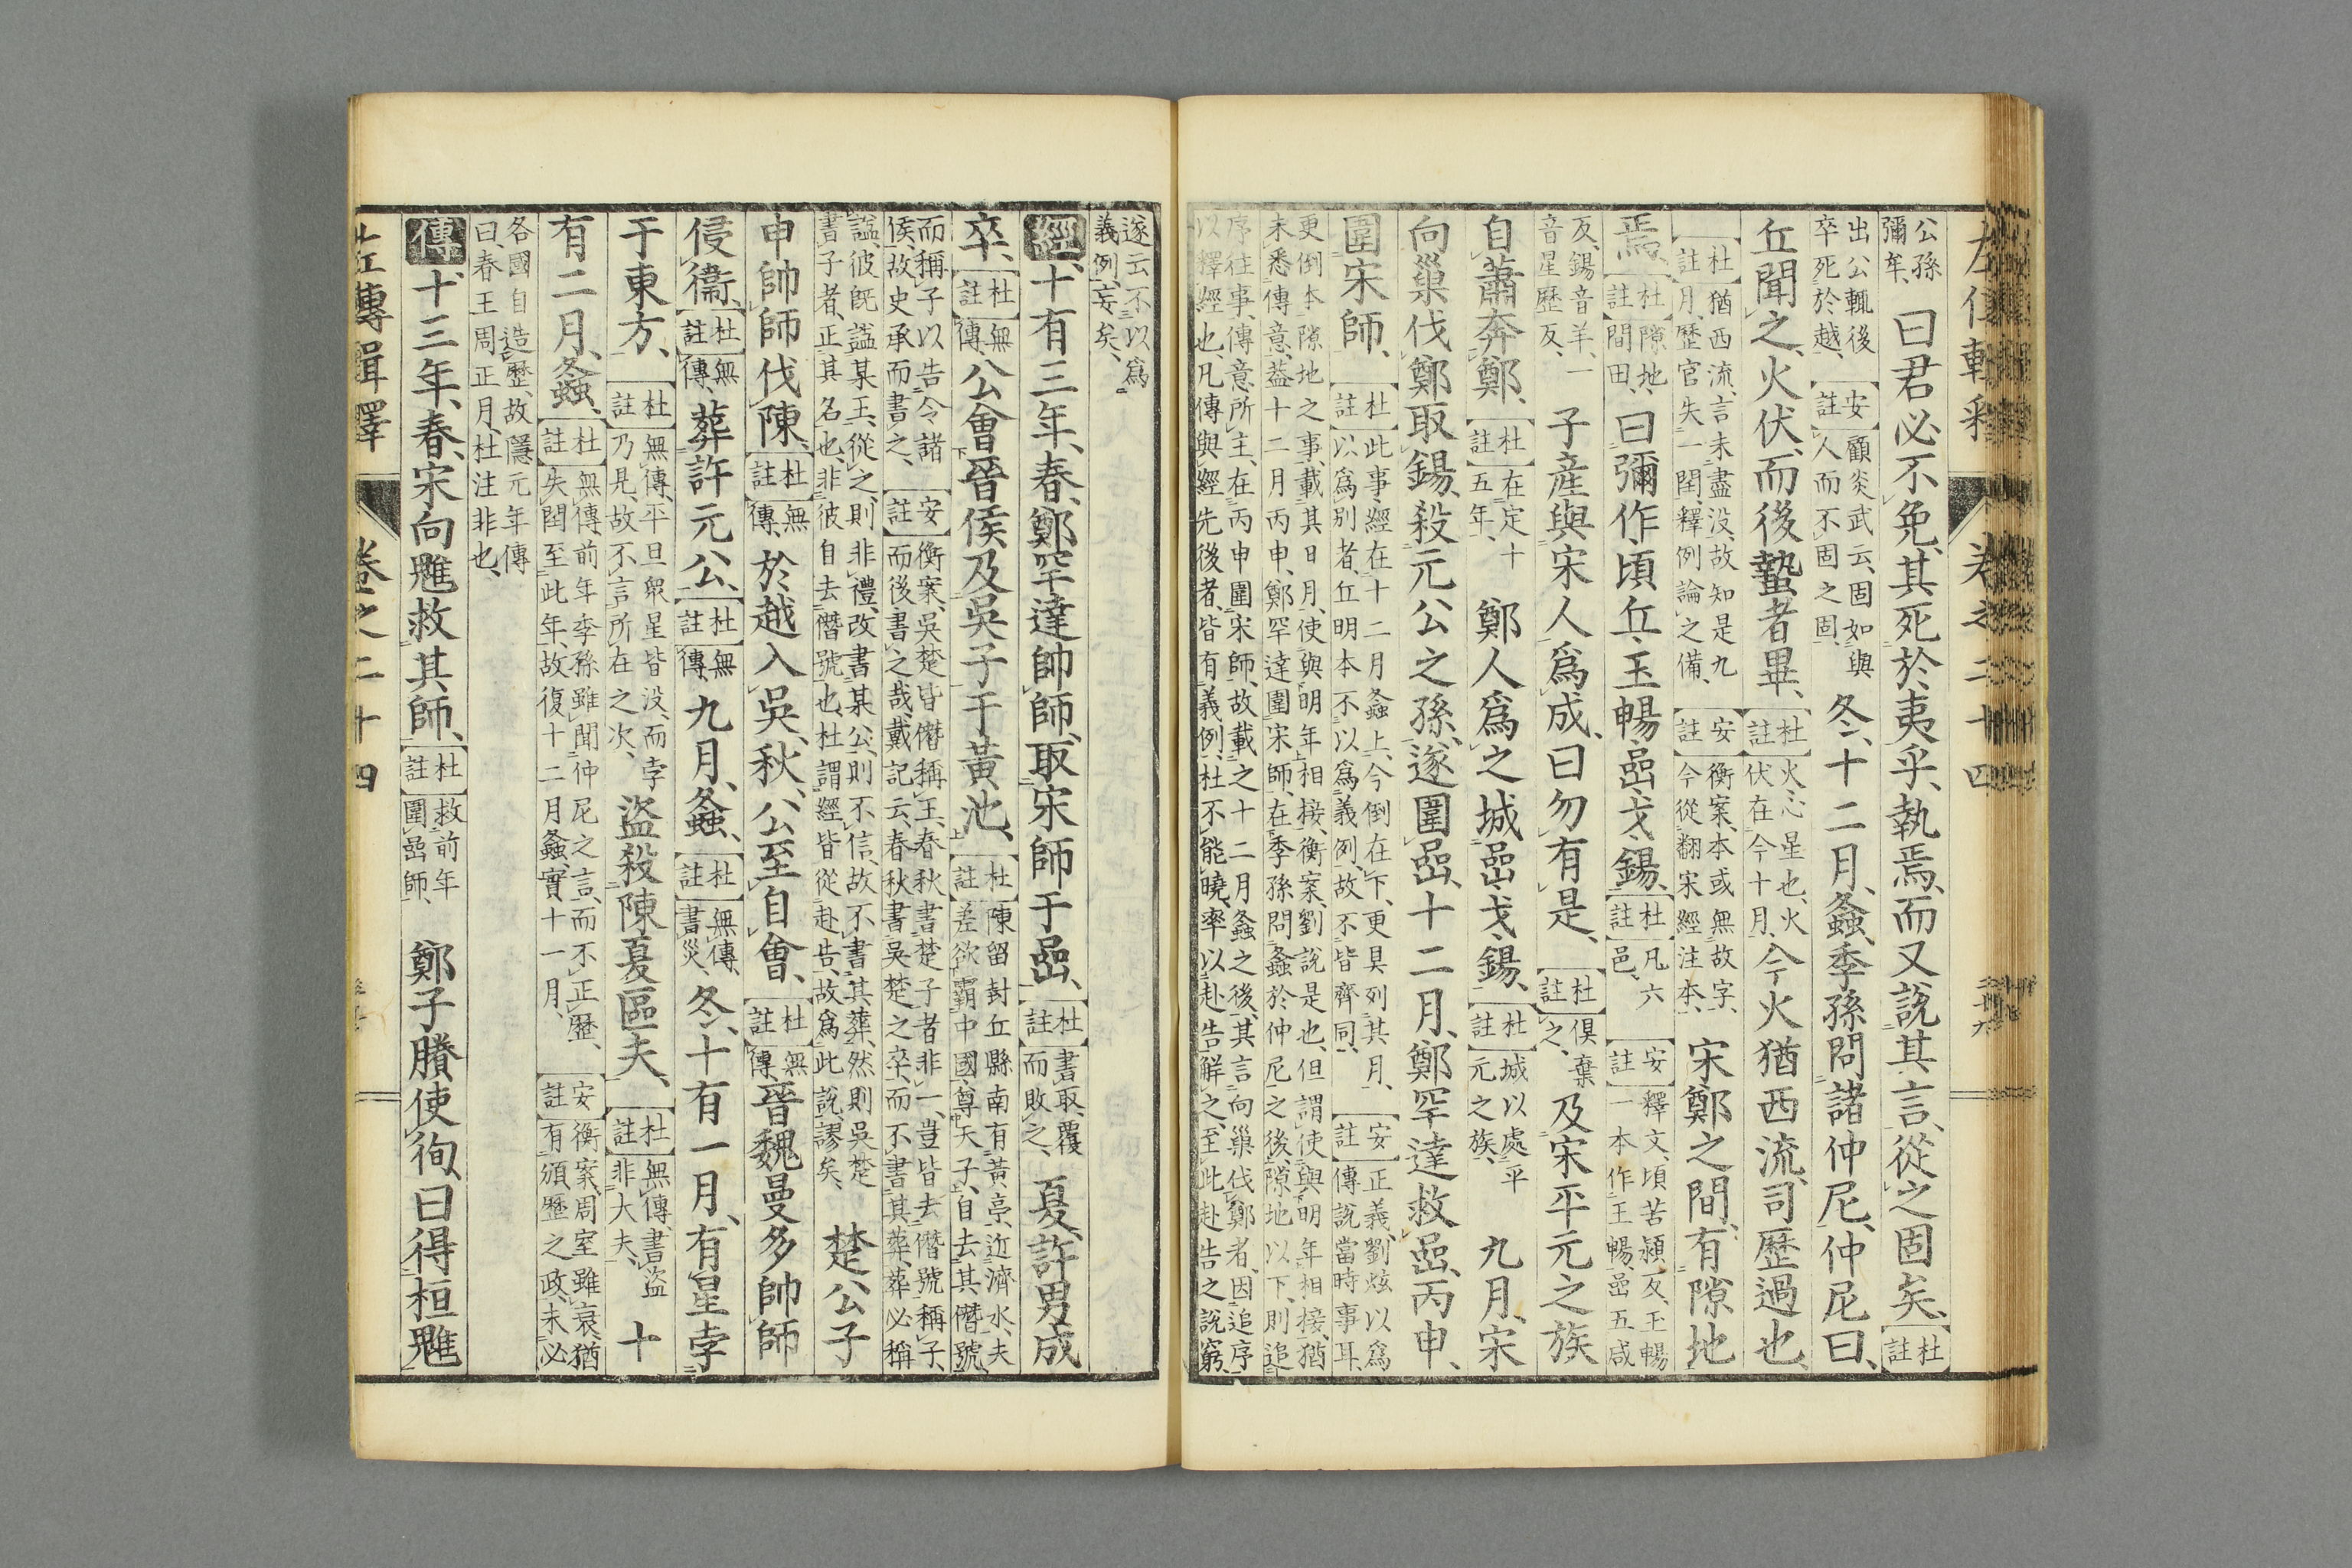 左傳輯釋 卷之二十四
公孫彌牟、曰君必不免、其死於夷乎、執焉、而又說其言、從之固矣、杜註
出公輒後卒死於越、安註顧炎武云、固如與人而不固之固、冬、十二月、螽、季孫問諸仲尼、仲尼曰、
丘聞之、火伏、而後蟄者畢、杜註火心星也、火伏在今十月、今火猶西流、司歷過也、
杜註猶西流、言未盡沒、故知是九月、歷官失一閏、釋例論之備、安註衡案、本或無故字、今從翻宋經注本、宋鄭之間、有隙地
焉、杜註隙地、間田、曰彌作、頃丘、玉暢、嵒、戈、鍚、杜註凡六邑、安註釋文、頃苦潁反、玉暢一本作王暢、嵒五咸
反、鍚音羊、一音星歷反、子產與宋人爲成、曰勿有是、杜註俱棄之、及宋平元之族
自蕭奔鄭、杜註在定十五年、鄭人爲之城嵒、戈、鍚、杜註城以處平元之族、九月、宋
向巢伐鄭取鍚、殺元公之孫、遂圍嵒、十二月、鄭罕達救嵒、丙申、
圍宋師、杜註此事、經在十二月螽上、今倒在下、更具列其月、以爲別者、丘明本不以爲義例、故不皆齊同、安註正義、劉炫以爲傳說當時事耳、
更倒本隙地之事、載其日月、使與明年相接、衡案、劉說是也、但謂使與明年相接、猶未悉傳意、益十二月丙申、鄭罕達圍宋師、在季孫問螽於仲尼之後、隙地以下、則追
序往事、傳意所主、在丙申圍宋師、故載之十二月螽之後、其言向巢伐鄭者、因追序以釋經也、凡傳與經先後者、皆有義例、杜不能曉、率以赴告解之、至此赴告之說窮、
遂云不以爲義例、妄矣、
經、十有三年、春、鄭罕達帥師、取宋師于嵒、杜註書取、覆而敗之、夏、許男成
卒、杜註無傳、公會晉侯及吳子于黃池、杜註陳留封丘縣南有黃亭、近濟水、夫差欲霸中國、尊天子、自去其僭號、
而稱子以告令諸侯、故史承而書之、安註衡案、吳楚皆僭稱王、春秋書楚子者非一、豈皆去僭號稱子、而後書之哉、戴記云、春秋書吳楚之卒、而不書其葬、葬必稱
謚、彼既謚某王、從之、則非禮、改書某公、則不信、故不書其葬、然則吳楚書子者、正其名也、非彼自去僭號也、杜謂經皆從赴告、故爲此說、謬矣、楚公子
申帥師伐陳、杜註無傳、於越入吳、秋、公至自會、杜註無傳、晉魏曼多帥師
侵衞、杜註無傳、葬許元公、杜註無傳、九月、螽、杜註無傳、書災、冬、十有一月、有星孛
于東方、杜註無傳、平旦衆星皆沒、而孛乃見、故不言所在之次、盜殺陳夏區夫、杜註無傳、書盜非大夫、十
有二月、螽、杜註無傳、前年季孫雖聞仲尼之言、而不正歷、失閏至此年、故復十二月螽、實十一月、安註衡案、周室雖衰、猶有頒歷之政、未必
各國自造歷、故隱元年傳曰、春王周正月、杜注非也、
傳、十三年、春、宋向魋救其師、杜註救前年圍嵒師、鄭子賸使徇、曰得桓魋
左傳輯釋 卷之二十四